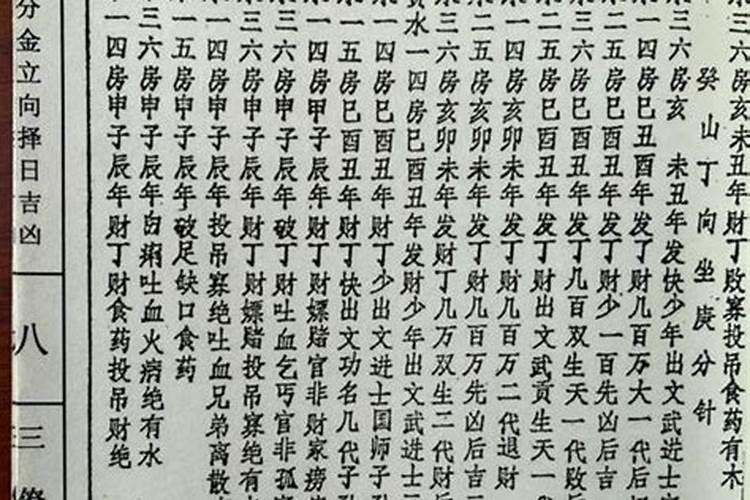 三六房亥未丑年财丁败寡投吊食药有木
癸山丁向坐庚分针
三六房亥 未丑年发快少年出文武进士
一四房巳丑酉年发了财几百万大一代后
二五房巳酉丑年发丁财少一百先凶后吉
三六房巳酉丑年发丁几百双生天一代败后
二五房巳酉丑年发丁财出文武贡生天一
一四房亥卯未年发丁财几百万二代退财
二五房亥卯未年发丁财几百万先凶后吉
三六房亥卯未年发财丁几万双生二代财
水一四房巳酉丑年发财少年出文武进士
一四房巳酉丑年财丁少出文进士国师子
一五房巳酉丑年财丁快出文功名几代子
一四房甲子辰年财丁财嫖赌官非财家痨
三六房申子辰年破丁财吐血乞丐官非孤
三六房申子辰年财丁财嫖赌投吊寡绝有
一四房申子辰年投吊寡绝吐血兄弟离散
一五房申子辰年破足缺口食药
三六房申子辰年白痢吐血火病绝有水
一四房申子辰年财丁财食药投吊财绝
分金立向择日吉凶
八
三